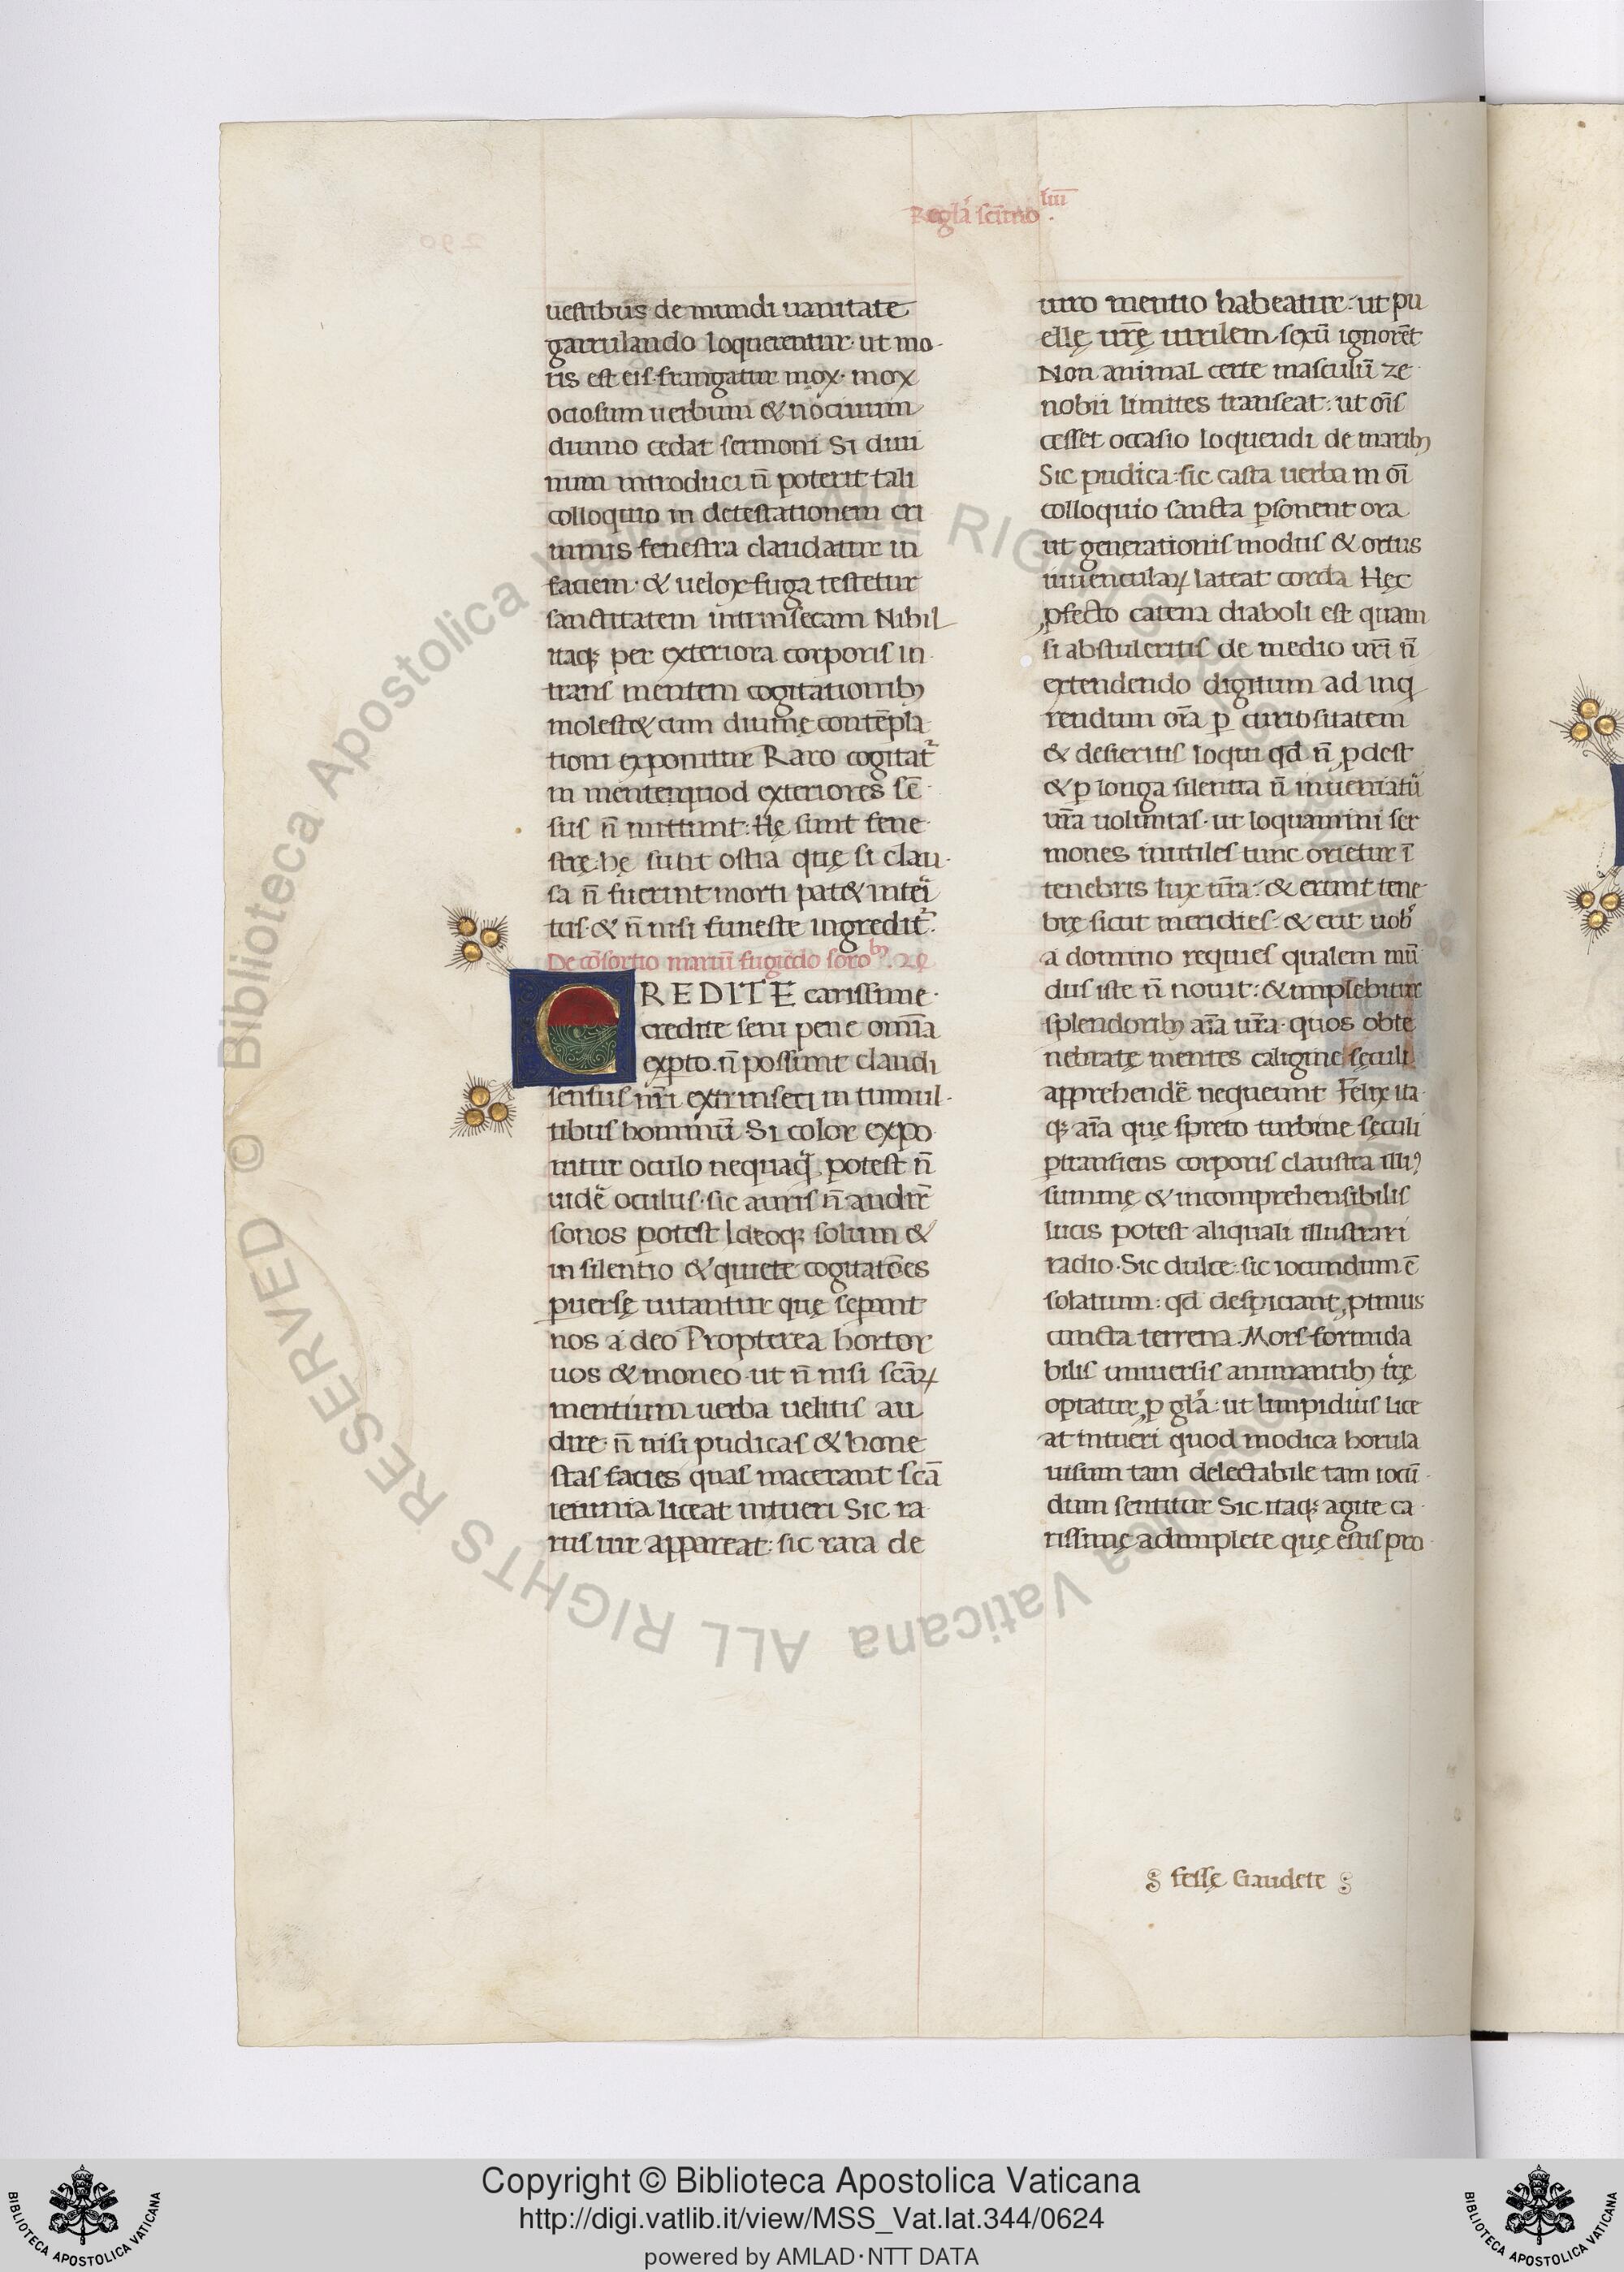 Reglā sc̄imo liiii
uestibus de mundi uanitate
garrulando loquerentur· ut mo-
ris est eis· frangatur mox· mox
ociosum uerbum & nociuum
diuino cedat sermoni Si diui
num introduci n̄ poterit tali
colloquio in detestationem cri
minis fenestra claudatur in
faciem· & uelox fuga testetur
sanctitatem intrinsecam Nihil
itaqꝫ per exteriora corporis in
trans mentem cogitationibꝫ
molest& cum diuinę contēpla
tioni exponitur Raro cogitat᷑
in mentem quod exteriores sē-
sus n̄ mittunt: Hę sunt fene-
strę· hę sunt ostia quę si clau-
sa n̄ fuerint morti pat& interi
tus· & n̄ nisi funeste ingredit᷑.
De cōsortio mariū fugiēdo sororibꝫ. 22
CREDITE carissime·
credite seni pene omīa
expto. n̄ possunt claudi
sensus nr̄i extrinseci in tumul-
tibus hominū Si color expo
nitur oculo nequaq̄ potest n̄
uidē oculus· sic auris n̄ audire
sonos potest Ideoqꝫ solum &
in silentio & quiete cogitatōes
ꝑuersę uitantur quę seꝑant
nos a deo Propterea hortor
uos & moneo· ut n̄ nisi scāꝝ
mentium uerba uelitis au
dire· n̄ nisi pudicas & hone
stas facies quas macerant scā
ieiunia liceat intueri Sic ra
rus uir appareat: sic rara de
uiro mentio habeatur· ut pu
ellę ur̄ę uirilem sexū ignorēt
Non animal certe masculiū ze
nobii limites transeat: ut oīs
cesset occasio loquendi de maribꝫ
Sic pudica: sic casta uerba in oī
colloquio sancta ꝑsonent ora
ut generationis modus & ortus
iuuencularꝝ lateat corda Hęc
ꝓfecto catena diaboli est quam
si abstuleritis de medio ur̄i n̄
extendendo digitum ad inq
rendum oīa ꝑ curiositatem
& desieritis loqui qd n̄ ꝓdest
& ꝑ longa silentia n̄ inueniatur
ur̄a uoluntas· ut loquamini ser
mones inutiles tunc orietur ī
tenebris lux ur̄a: & erunt tene-
brę sicut meridies· & erit uob
a domino requies qualem mū
dus iste n̄ nouit: & implebitur
splendoribꝫ aīa ur̄a· quos obte
nebratę mentes caligine sęculi
apprehendē nequeunt Felix ita-
qꝫ aīa quę spreto turbine sęculi
ꝑtransiens corporis claustra illiꝰ
summę & incomprehensibilis
lucis potest aliquali illustrari
radio· Sic dulce: sic iocundum ē
solatium: qd despiciant ꝓtinus
cuncta terrena· Mors formida
bilis uniuersis animantibꝫ tr̄ę
optatur ꝓ glā: ut limpidius lice
at intueri quod modica horula
uisum tam delectabile tam iocū-
dum sentitur Sic itaqꝫ agite ca
rissimę adimplete quę estis pro
fessę Gaudete
Copyright © Biblioteca Apostolica Vaticana
http://digi.vatlib.it/view/MSS_Vat.lat.344/0624
powered by AMLAD·NTT DATA
BIBLIOTECA APOSTOLICA VATICANA
BIBLIOTECA APOSTOLICA VATICANA
© Biblioteca Apostolica Vaticana ALL RIGHTS RESERVED
Biblioteca Apostolica Vaticana ALL RIGHTS RESERVED